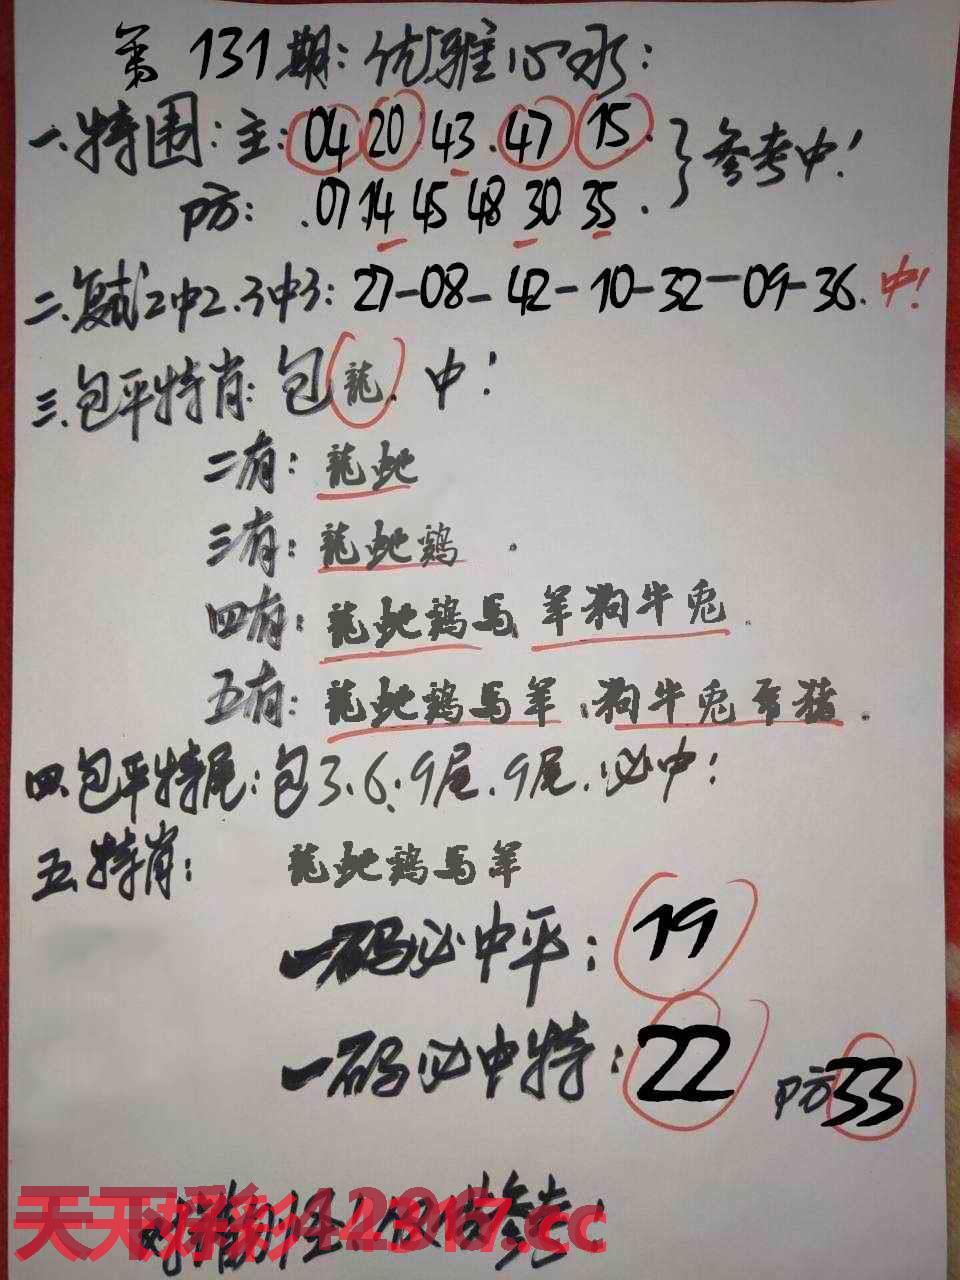 第131期:优雅心水:
一.特围:主:04 20.43.47 15.}参考中!
防:.07.14 45 48 30 35.
二.复式2中2.3中3:27-08-42-10-32-09-36.中!
三.包平特肖:包龍.中!
二有:龍蛇
三有:龍蛇鸡.
四有:龍蛇鸡马.羊狗牛兔.
五有:龍蛇鸡马羊.狗牛兔 猪.
四.包平特尾:包3.6.9尾.9尾.必中!
五.特肖:龍蛇鸡马羊
一码必中平:19
一码必中特:22 防33
天下彩 .cc